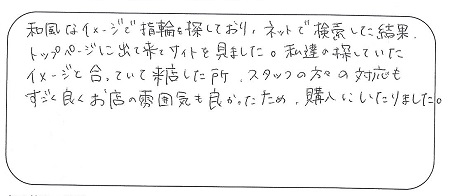 和風なイメージで指輪を探しており、ネットで検索した結果、
トップページに出て来てサイトを見ました。私達の探していた
イメージと合っていて来店した所、スタッフの方々の対応も
すごく良くお店の雰囲気も良かったため、購入にいたりました。